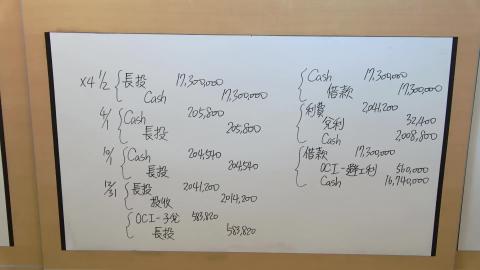 X4 1/2 長投 17,300,000
Cash 17,300,000
4/1 Cash 205,800
長投 205,800
10/1 Cash 204,540
長投 204,540
12/31 長投 2041,200
投收 2014,200
OCI-子兌 583,820
長投 583,820
Cash 17,300,000
借款 17,300,000
利費 2041,200
兌利 32,400
Cash 2,008,800
借款 17,300,000
OCI-避工利 560,000
Cash 16,740,000